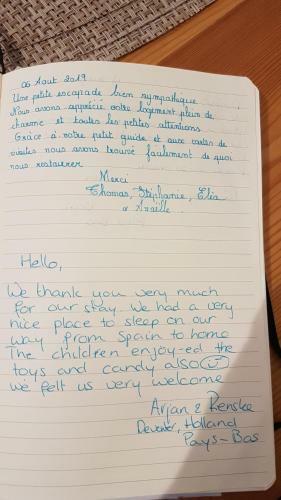 06 Aout 2019
Une petite escapade bien sympathique
Nous avons apprécié votre logement plein de
charme et toutes les petites attentions
Grâce à votre petit guide et aux cartes de
visites nous avons trouvé facilement de quoi
nous restaurer
Merci
Thomas, Stéphanie, Elia
& Anaëlle
Hello,
We thank you very much
for our stay. We had a very
nice place to sleep on our
way from Spain to home
The children enjoy-ed the
toys and candy also
We felt us very welcome
Arjan & Renske
Holland
Pays-Bas